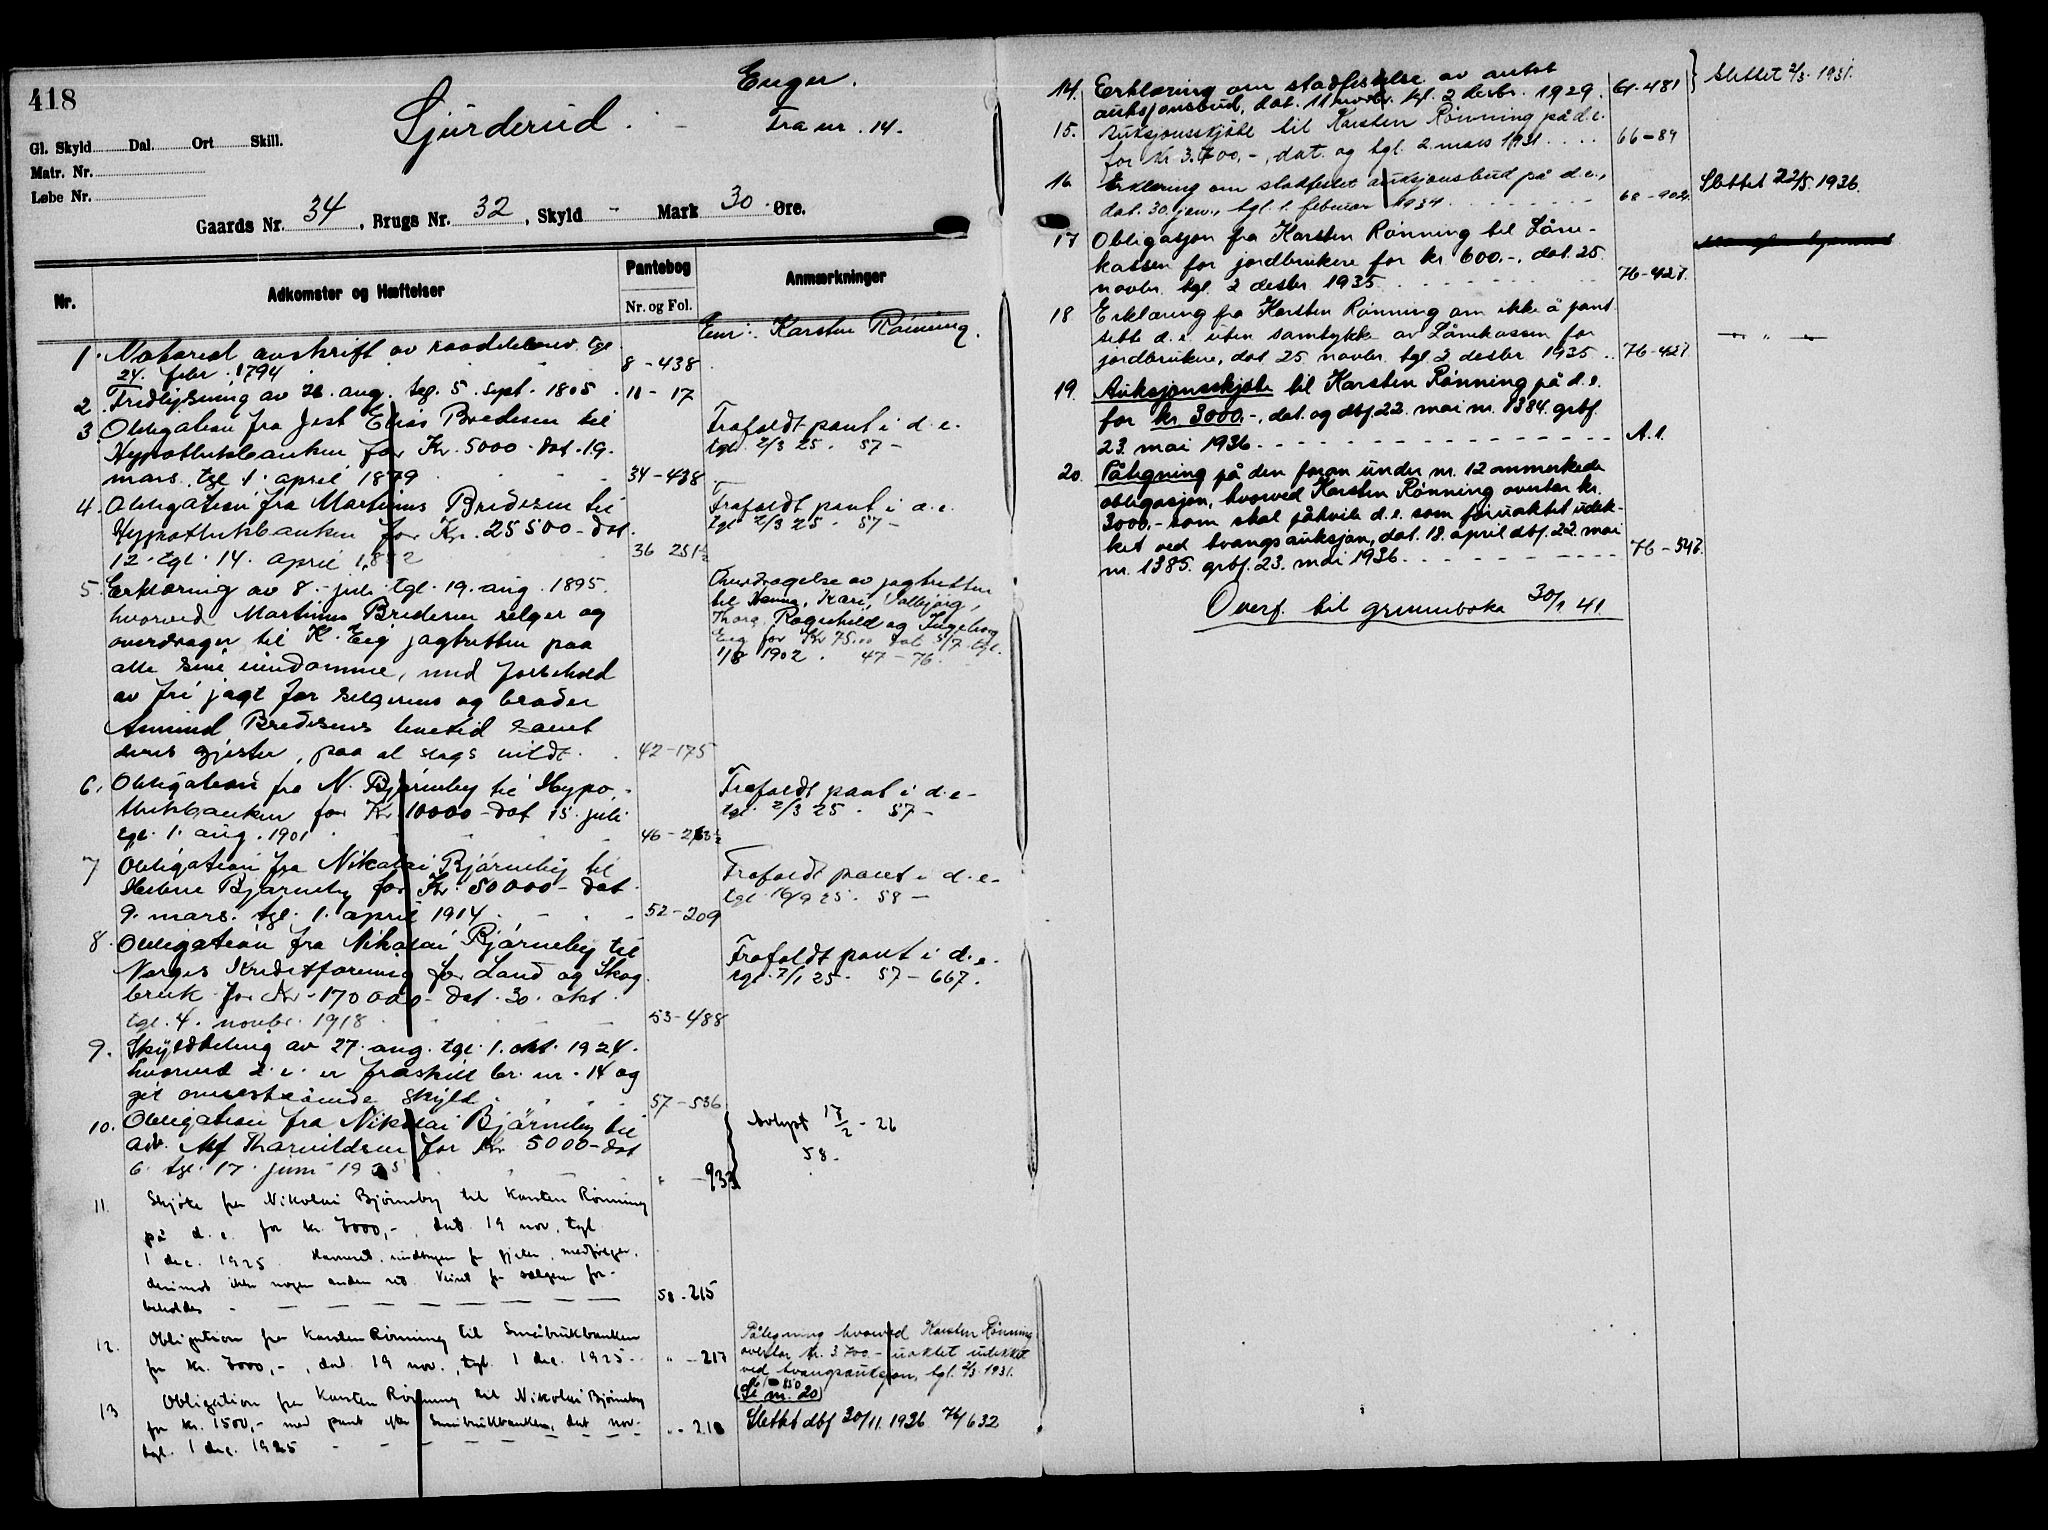 418
Sjurderud.
Enger.
Fra nr. 14.
Gl. Skyld Dal. Ort Skill.
Matr. Nr.
Løbe Nr.
Gaards Nr. 34, Brugs Nr. 32, Skyld - Mark 30 Øre.
Nr. Adkomster og Hæftelser Pantebog Anmærkninger
Nr. og Fol.
Eier: Karsten Rønning.
1. Notarial avskrift av raadelsbrev tgl
24. febr. 1794 8-438
2. Fredlysning av 26. aug. tgl. 5. sept. 1805. 11-17
3. Obligation fra Jost Elias Bredesen til
Hypothekbanken for Kr. 5000- dat. 19.
mars. tgl 1. april 1879 34-438
Frafaldt pant i d.e.
tgl. 2/3 25. 57-
4. Obligation fra Martinus Bredesen til
Hypothekbanken for Kr. 25500- dat.
12. tgl. 14. april 1882 36 251½
Frafaldt pant i d.e.
tgl 2/3 25. 57-
5. Erklæring av 8. juli tgl. 19. aug. 1895.
hvorved Martinus Bredesen selger og
overdrager til K. Eeg jagtretten paa
alle sine eiendomme, med forbehold
av fri jagt for selgerens og broder
Amund Bredesens levetid samt
deres gjester, paa al slags vildt. 42-175
Overdragelse av jagtretten
til Hanna, Kari, Valbjørg,
Thora, Ragnhild og Ingeborg
Eeg for Kr 75.00 dat 5/7 tgl.
1/8 1902. 47-76.
6. Obligation fra N. Bjørneby til Hypo-
thekbanken for Kr. 10000- dat 15. juli
tgl. 1. aug. 1901 46-263½
Frafaldt pant i d.e-
tgl. 2/3 25. 57-
7 Obligation fra Nikolai Bjørneby til
Helene Bjørneby for Kr. 50000- dat.
9. mars. tgl. 1. april 1914. 52-209
Frafaldt pant i d.e-
tgl. 16/9 25. 58-
8. Obligation fra Nikolai Bjørneby til
Norges Kreditforening for Land og Skog
bruk for Kr-170000- dat. 30. okt.
tgl. 4. novbr. 1918. 53-488
Frafaldt pant i d.e.
tgl. 7/1 25. 57-667.
9. Skylddeling av 27. aug. tgl. 1. okt. 1924.
hvorved d.e. er fraskilt br. nr. 14 og
git ovenstaaende skyld. 57-536
10. Obligation fra Nikolai Bjørneby til
adv. Alf Thorvildsen for Kr. 5000- dat
6. tgl. 17. juni 1925 " -933
Avlyst 17/2-26
58-
11. Skjøte fra Nikolai Bjørneby til Karsten Rønning
på d.e. for kr. 7000,-, dat. 19 nov, tgl.
1 dec. 1925. Havneret for gjeter, medfølger,
derimot ikke nogen anden ret. Veiret for sælgeren for-
beholdes - 58-215
12. Obligation fra Karsten Rønning til Småbrukbanken
for kr. 7000,-, dat. 19 nov., tgl. 1 dec. 1925- " -217
Påtegning hvorved Karsten Rønning
overtar kr. 3700.- uaktet udekket
ved tvangsauksjon, tgl. 2/3 1931.
61-850
(Se nr. 20)
13 Obligation fra Karsten Rønning til Nikolai Bjørneby
for kr. 1500,- med pant efter Småbrukbanken, dat nov-
tgl. 1 dec. 1925 " -218
Slettet dbf 30/11 1936 76/632
14. Erklæring om stadfestelse av antat
auksjonsbud, dat. 11 novbr. tgl. 2 desbr. 1929. 61-481
Slettet 2/3. 1931.
15. Auksjonsskjøte til Karsten Rønning på d.e.
for kr 3.700,-, dat. og tgl. 2 mars 1931.... 66-89
16. Erklæring om stadfestet auksjonsbud på d.e.,
dat. 30. jan., tgl. 1. februar 1934. 68-902.
Slettet 22/5 1936.
17 Obligasjon fra Karsten Rønning til Låne-
kassen for jordbrukere for kr 600.-, dat. 25.
novbr. tgl. 2 desbr 1935. 76-427.
18 Erklæring fra Karsten Rønning om ikke å pant
sette d.e. uten samtykke av Lånekassen for
jordbrukere, dat 25 novbr. tgl. 2 desbr 1935.. 76-427
— " —
19. Auksjonsskjøte til Karsten Rønning på d.e.
for kr. 3000.-, dat. og dbf. 22. mai nr. 1384. grbf.
23. mai 1936. A.1.
20. Påtegning på den foran under nr. 12 anmerkede
obligasjon, hvorved Karsten Rønning overtar kr.
3000,- som skal påhvile d.e. som foruaktet udek-
ket ved tvangsauksjon, dat. 18. april dbf. 22. mai
nr. 1385. grbf. 23. mai 1936. 76-547.
Overf. til grunnboka 30/1 41.